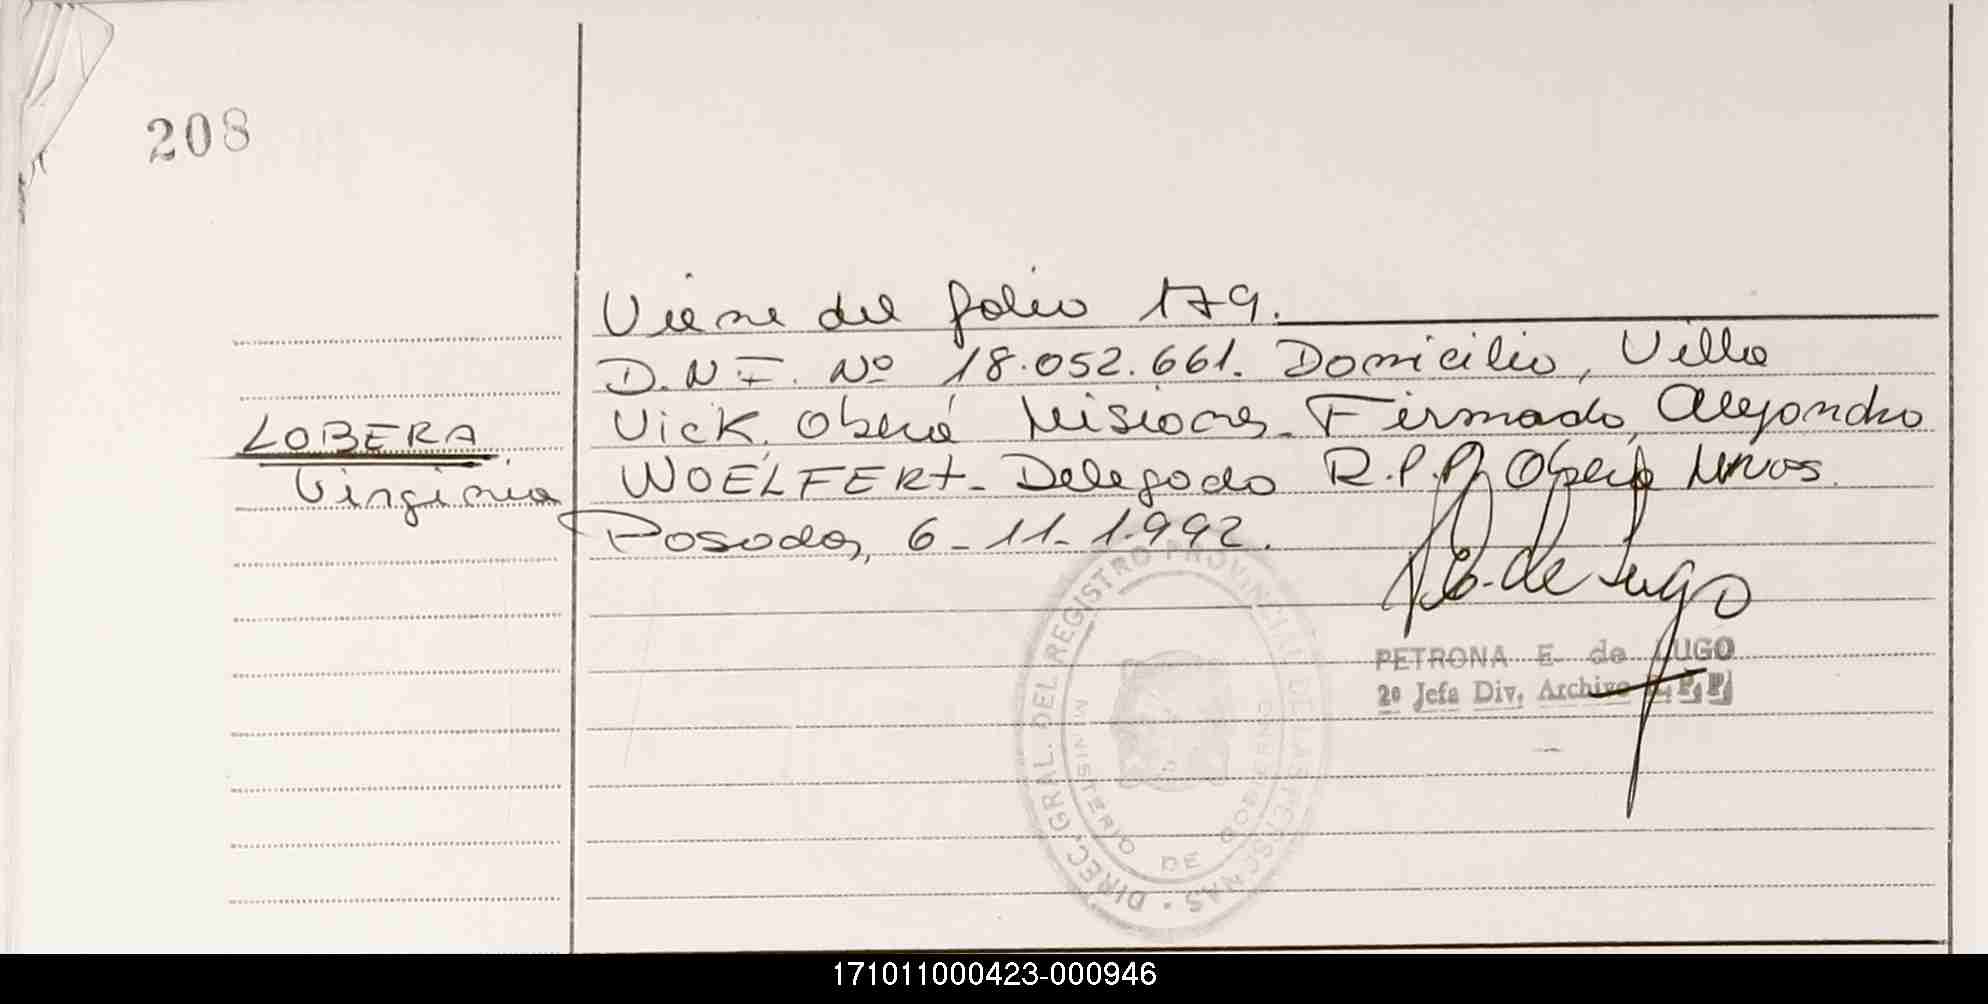 208
LOBERA
Virginia
Viene del folio 179.
D.N.I. Nº 18.052.661. Domicilio, Villa
Vick. Oberá Misiones. Firmado, Alejandro
WOELFERT. Delegado R.P.P. Oberá Mnes.
Posadas, 6-11-1992.
P.E. de Lugo
PETRONA E. de LUGO
2º Jefa Div, Archivo R.P.P.
DIREC. GRAL. DEL REGISTRO PROVINCIAL DE LAS PERSONAS
MINISTERIO DE GOBIERNO
171011000423-000946